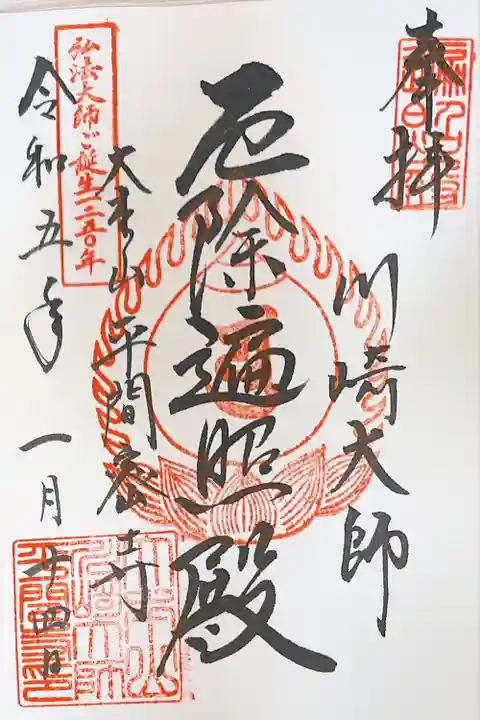 奉拝
川崎大師
厄除遍照殿
大本山平間密寺
弘法大師ご誕生一二五〇年
令和五年一月廿四日